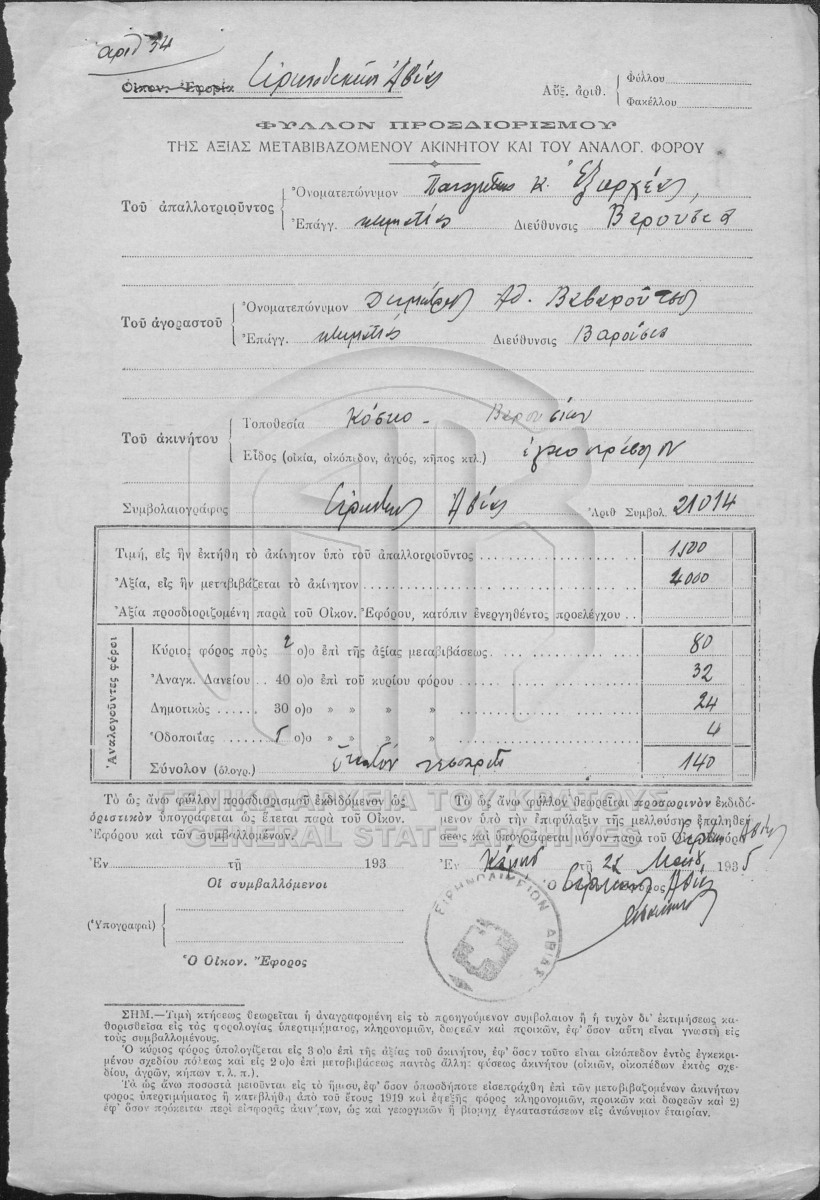 ἀριθ 34
Οἰκον. Ἐφορία Εἰρηνοδικεῖον Ἀβίας
Αὔξ. ἀριθ. Φύλλου
Φακέλλου
ΦΥΛΛΟΝ ΠΡΟΣΔΙΟΡΙΣΜΟΥ
ΤΗΣ ΑΞΙΑΣ ΜΕΤΑΒΙΒΑΖΟΜΕΝΟΥ ΑΚΙΝΗΤΟΥ ΚΑΙ ΤΟΥ ΑΝΑΛΟΓ. ΦΟΡΟΥ
Τοῦ ἀπαλλοτριοῦντος
Ὀνοματεπώνυμον Παναγιώτης Κ. Ἐξαρχέας,
Ἐπάγγ. κτηματίας Διεύθυνσις Βαρούσια
Τοῦ ἀγοραστοῦ
Ὀνοματεπώνυμον Δημήτριος Αθ.
Ἐπάγγ. κτηματίας Διεύθυνσις Βαρούσια
Τοῦ ἀκινήτου
Τοποθεσία Βαρουσίων
Εἶδος (οἰκία, οἰκόπεδον, ἀγρός, κῆπος κτλ.)
Συμβολαιογράφος Εἰρηνοδίκης Ἀβίας Ἀριθ Συμβολ. 21014
Τιμή, εἰς ἣν ἐκτήθη τὸ ἀκίνητον ὑπὸ τοῦ ἀπαλλοτριοῦντος 1500
Ἀξία, εἰς ἣν μεταβιβάζεται τὸ ἀκίνητον 4000
Ἀξία προσδιοριζομένη παρὰ τοῦ Οἰκον. Ἐφόρου, κατόπιν ἐνεργηθέντος προελέγχου
Ἀναλογοῦντες φόροι
Κύριος φόρος πρὸς 2 ο)ο ἐπὶ τῆς ἀξίας μεταβιβάσεως 80
Ἀναγκ. Δανείου 40 ο)ο ἐπὶ τοῦ κυρίου φόρου 32
Δημοτικὸς 30 ο)ο » » » » 24
Ὁδοποιΐας 5 ο)ο » » » » 4
Σύνολον (ὁλογρ.) ἑκατὸν τεσσαράκοντα 140
ΓΕΝΙΚΑ ΑΡΧΕΙΑ ΤΟΥ ΚΡΑΤΟΥΣ
GENERAL STATE ARCHIVES
Τὸ ὡς ἄνω φύλλον προσδιορισμοῦ ἐκδιδόμενον ὡς
ὁριστικὸν ὑπογράφεται ὡς ἕπεται παρὰ τοῦ Οἰκον.
Ἐφόρου καὶ τῶν συμβαλλομένων.
Ἐν τῇ 193
Οἱ συμβαλλόμενοι
(Ὑπογραφαὶ)
Ὁ Οἰκον. Ἔφορος
Τὸ ὡς ἄνω φύλλον θεωρεῖται προσωρινὸν ἐκδιδό-
μενον ὑπὸ τὴν ἐπιφύλαξιν τῆς μελλούσης ἐπαληθεύ-
σεως καὶ ὑπογράφεται μόνον παρὰ τοῦ Εἰρηνοδίκου Ἀβίας
Ἐν Κάμπῳ τῇ 22 1935
Ὁ Εἰρηνοδίκης Ἀβίας
ΕΙΡΗΝΟΔΙΚΕΙΟΝ ΑΒΙΑΣ
ΣΗΜ.—Τιμὴ κτήσεως θεωρεῖται ἡ ἀναγραφομένη εἰς τὸ προηγούμενον συμβολαιον ἢ ἡ τυχὸν δι' ἐκτιμήσεως κα-
θορισθεῖσα εἰς τὰς φορολογίας ὑπερτιμήματος, κληρονομιῶν, δωρεῶν καὶ προικῶν, ἐφ' ὅσον αὕτη εἶναι γνωστὴ εἰς
τοὺς συμβαλλομένους.
Ὁ κύριος φόρος ὑπολογίζεται εἰς 3 ο)ο ἐπὶ τῆς ἀξίας τοῦ ἀκινήτου, ἐφ' ὅσον τοῦτο εἶναι οἰκόπεδον ἐντὸς ἐγκεκρι-
μένου σχεδίου πόλεως καὶ εἰς 2 ο)ο ἐπὶ μεταβιβάσεως παντὸς ἄλλης φύσεως ἀκινήτου (οἰκιῶν, οἰκοπέδων ἐκτὸς σχε-
δίου, ἀγρῶν, κήπων τ. λ. π.).
Τὰ ὡς ἄνω ποσοστὰ μειοῦνται εἰς τὸ ἥμισυ, ἐφ' ὅσον ὁπωσδήποτε εἰσεπράχθη ἐπὶ τῶν μεταβιβαζομένων ἀκινήτων
φορος ὑπερτιμήματος ἢ κατεβλήθη ἀπὸ τοῦ ἔτους 1919 καὶ ἐφεξῆς φόρος κληρονομιῶν, προικῶν καὶ δωρεῶν καὶ 2)
ἐφ' ὅσον πρόκειται περὶ εἰσφορᾶς ἀκινήτων, ὡς καὶ γεωργικῶν ἢ βιομηχ ἐγκαταστάσεων εἰς ἀνώνυμον ἑταιρίαν.